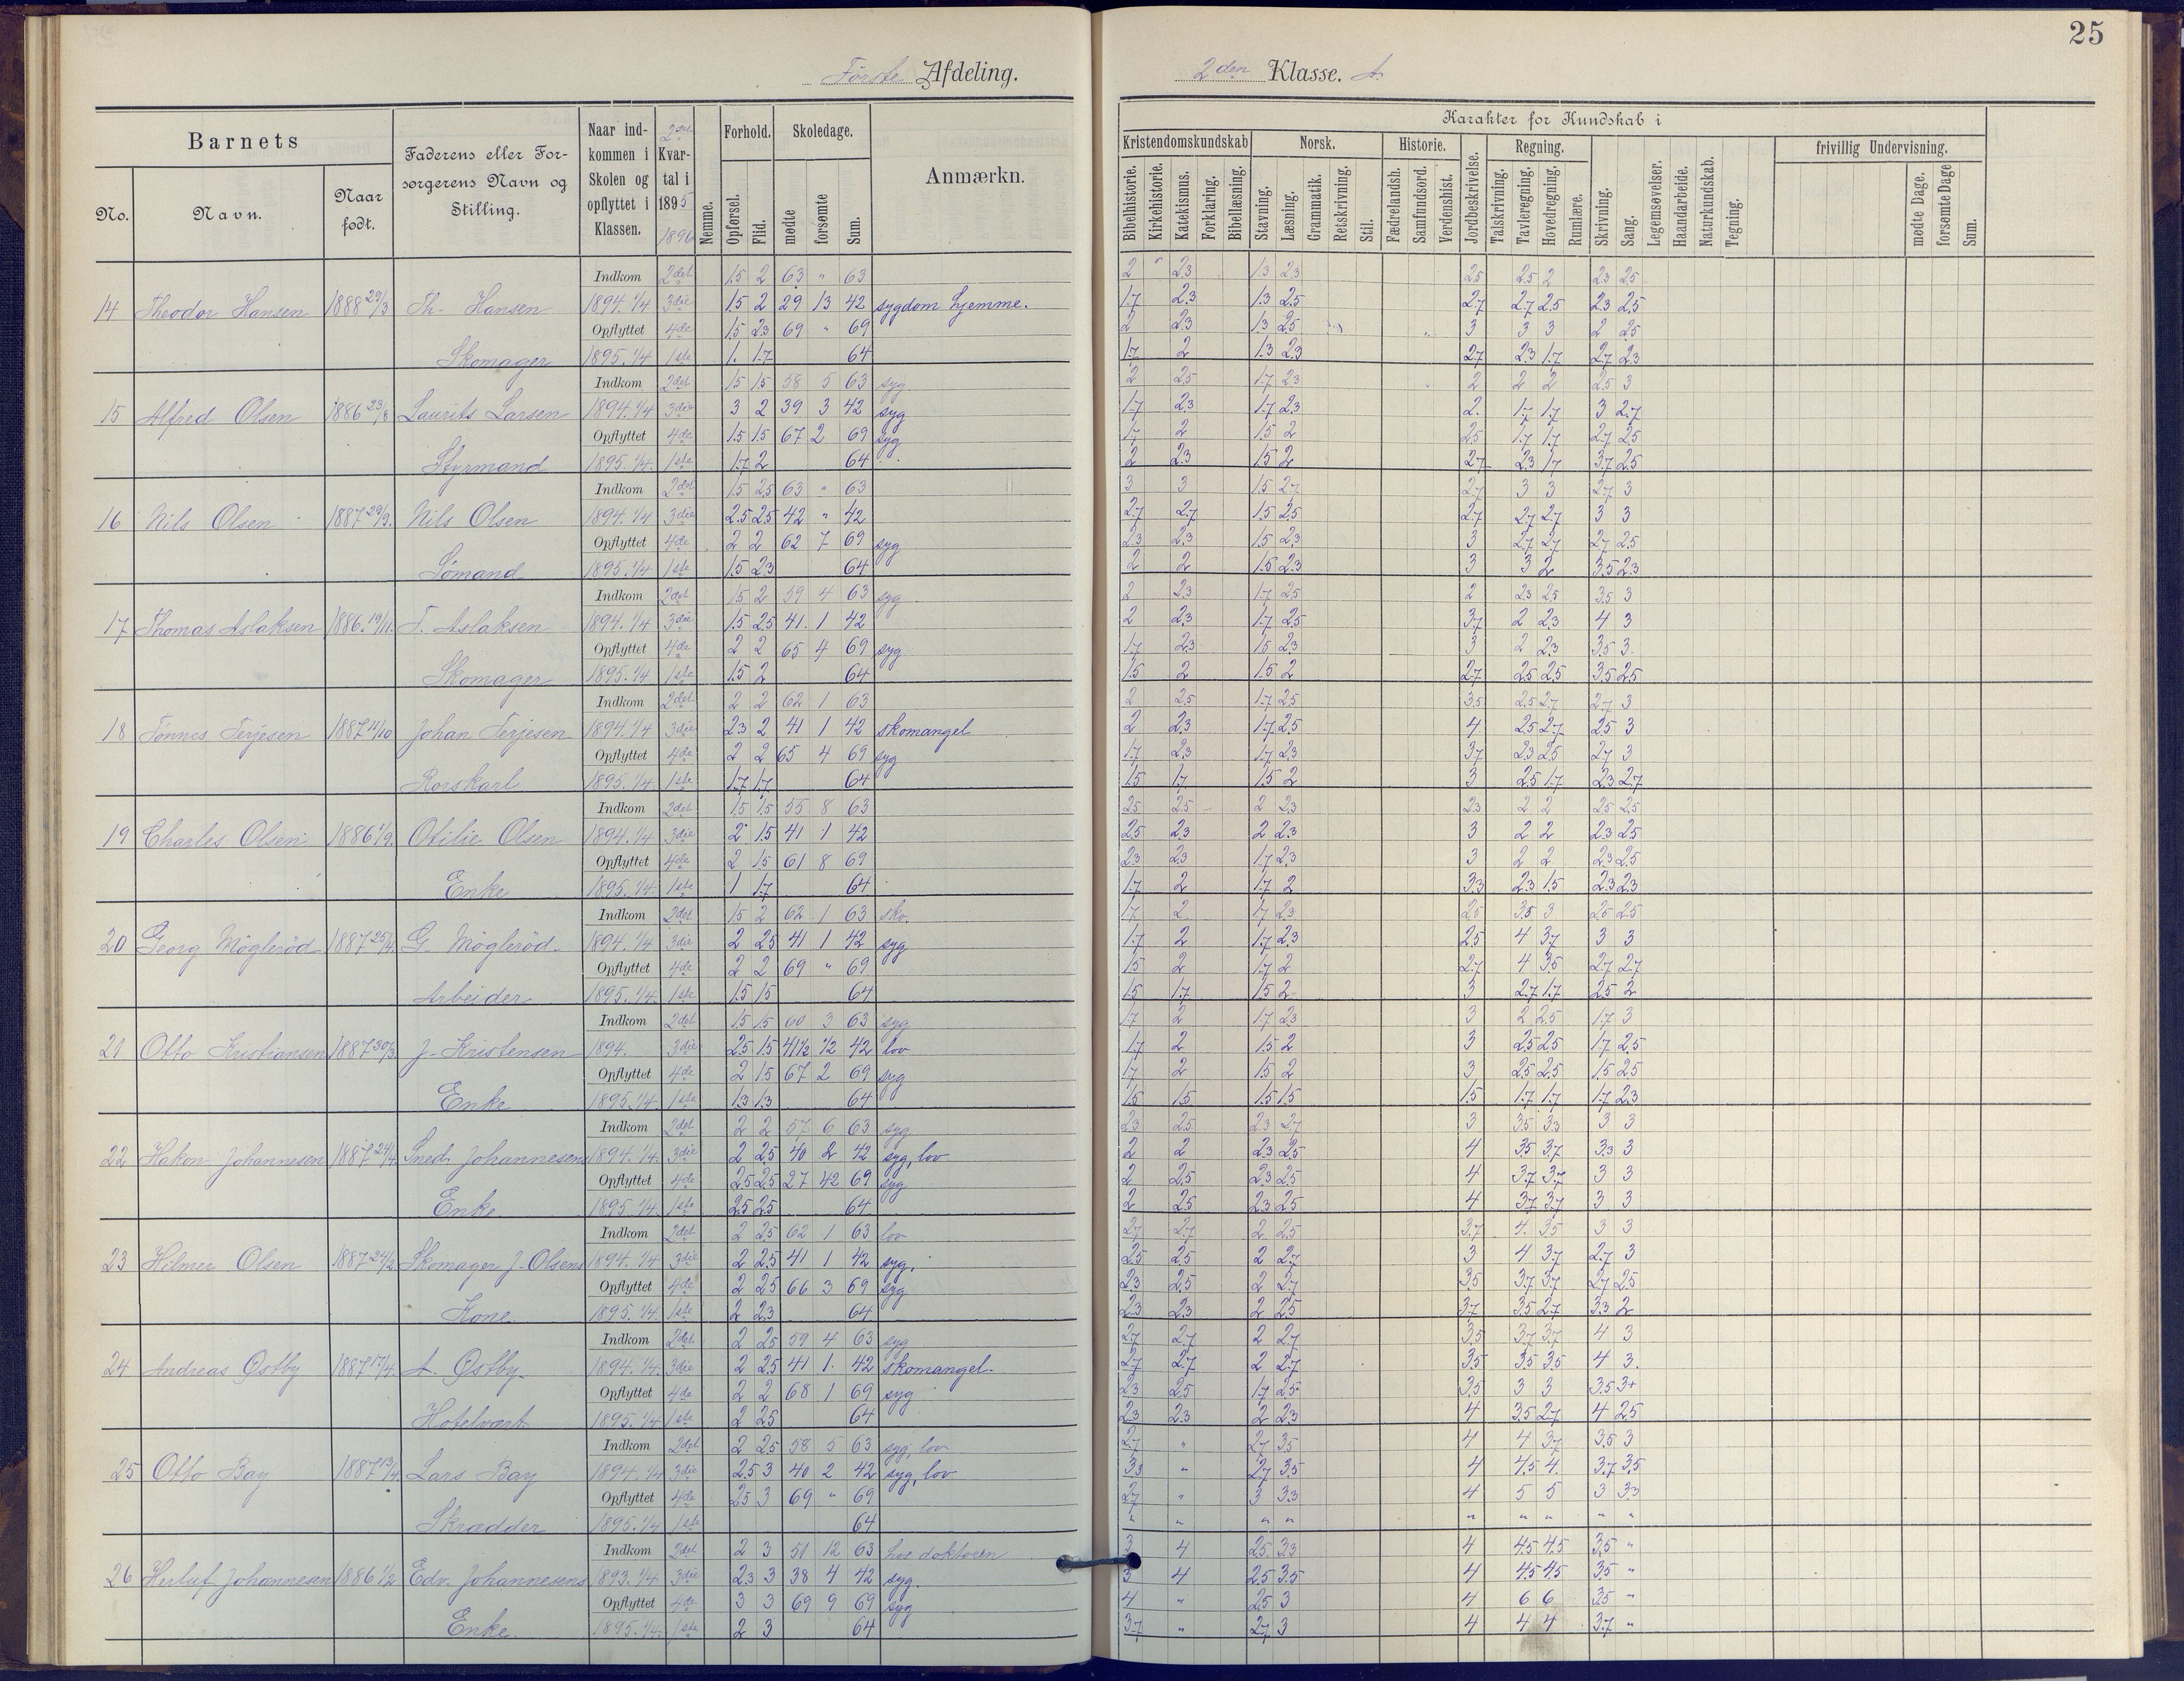 25
Første Afdeling.
2den Klasse. A.
Barnets
No.
Navn.
Naar født.
Faderens eller Forsørgerens Navn og Stilling.
Naar indkommen i Skolen og opflyttet i Klassen.
2det Kvartal i 1895
1896
Nemme.
Forhold.
Opførsel.
Flid.
Skoledage.
mødte
forsømte
Sum.
Anmærkn.
Karakter for Kundskab i
Kristendomskundskab
Bibelhistorie.
Kirkehistorie.
Katekismus.
Forklaring.
Bibellæsning.
Norsk.
Stavning.
Læsning.
Grammatik.
Retskrivning.
Stil.
Historie.
Fædrelandsh.
Samfundsord.
Verdenshist.
Jordbeskrivelse.
Regning.
Talskrivning.
Tavleregning.
Hovedregning.
Rumlære.
Skrivning.
Sang.
Legemsøvelser.
Haandarbeide.
Naturkundskab.
Tegning.
frivillig Undervisning.
mødte Dage.
forsømte Dage
Sum.
Indkom 2det 1.5 2 63 " 63 2 " 2.3 1.3 2.3 2.5 2.5 2 2.3 2.5
14 Theodor Hansen 1888 29/3 Th. Hansen 1894. 1/4 3die 1.5 2 29 13 42 sygdom hjemme. 1.7 2.3 1.3 2.5 2.7 2.7 2.5 2.3 2.5
Opflyttet 4de 1.5 2.3 69 " 69 2 2.3 1.3 2.5 3 3 3 2 2.5
Skomager 1895. 1/4 1ste 1. 1.7 64 1.7 2 1.3 2.3 2.7 2.3 1.7 2.7 2.3
Indkom 2det 1.5 1.5 58 5 63 syg. 2 2.5 1.7 2.3 2 2 2 2.5 3
15 Alfred Olsen 1886 23/8 Laurits Larsen 1894 1/4 3die 3 2 39 3 42 syg 1.7 2.3 1.7 2.3 2. 1.7 1.7 3 2.7
Opflyttet 4de 1.5 1.5 67 2 69 syg 1.7 2 1.5 2 2.5 1.7 1.7 2.7 2.5
Styrmand 1895. 1/4. 1ste 1.7 2 64 2 2.3 1.5 2 2.7 2.3 1.7 3.7 2.5
Indkom 2det 1.5 2.5 63 " 63 3 3 1.5 2.7 2.7 3 3 2.7 3
16 Nils Olsen 1887 29/9. Nils Olsen 1894. 1/4 3die 2.5 2.5 42 " 42 2.7 2.7 1.5 2.5 2.7 2.7 2.7 3 3
Opflyttet 4de 2 2 62 7 69 syg 2.3 2.3 1.5 2.3 3 2.7 2.7 2.7 2.5
Sømand 1895. 1/4 1ste 1.5 2.3 64 2 2 1.5 2.3 3 3 2 3.5 2.3
Indkom 2det 1.5 2 59 4 63 syg 2 2.3 1.7 2.5 2 2.3 2.5 3.5 3
17 Thomas Aslaksen 1886. 19/11. T. Aslaksen 1894. 1/4 3die 1.5 2.5 41. 1 42 2 2.3 1.7 2.5 3.7 2 2.3 4 3
Opflyttet 4de 2 2 65 4 69 syg 1.7 2.3 1.5 2.3 3 2 2.3 3.5 3.
Skomager 1895. 1/4 1ste 1.5 2 64 1.5 2 1.5 2 2.7 2.5 2.5 3.5 2.5
Indkom 2det 2 2 62 1 63 2 2.5 1.7 2.5 3.5 2.5 2.7 2.7 3
18 Tønnes Terjesen 1887 11/10 Johan Terjesen 1894. 1/4 3die 2.3 2 41 1 42 skomangel 2 2.3 1.7 2.5 4 2.5 2.7 2.5 3
Opflyttet 4de 2 2 65 4 69 syg 1.7 2.3 1.7 2.3 3.7 2.3 2.5 2.7 3
Rorskarl 1895. 1/4 1ste 1.7 1.7 64 1.5 1.7 1.5 2 3 2.5 1.7 2.3 2.7
Indkom 2det 1.5 1.5 55 8 63 2.5 2.5 2 2.3 2.3 2 2 2.5 2.5
19 Charles Olsen 1886 1/9. Otilie Olsen 1894. 1/4 3die 2 1.5 41 1 42 2.5 2.3 2 2.3 3 2 2 2.3 2.5
Opflyttet 4de 2 1.5 61 8 69 2.3 2.3 1.7 2.3 3 2 2 2.3 2.5
Enke 1895. 1/4. 1ste 1 1.7 64 1.7 2 1.7 2 3.3 2.3 1.5 2.3 2.3
Indkom 2det. 1.5 2 62 1 63 sko. 1.7 2 1.7 2.3 2.5 3.5 3 2.5 2.5
20 Georg Møglerød 1887 25/4. G. Møglerød 1894. 1/4 3die 2 2.5 41 1 42 syg 1.7 2 1.7 2.3 2.5 4 3.7 3 3
Opflyttet 4de 2 2 69 " 69 1.5 2 1.7 2 2.7 4 3.5 2.7 2.7
Arbeider 1895. 1/4. 1ste 1.5 1.5 64 1.5 1.7 1.5 2 3 2.7 1.7 2.5 2
Indkom 2det 1.5 1.5 60 3 63 syg 1.7 2 1.7 2.3 3 2 2.5 1.7 3
21 Otto Kristiansen 1887 30/3 J. Kristensen 1894. 3die 2.5 1.5 41 1/2 1/2 42 lov 1.7 2 1.5 2 3 2.5 2.5 1.7 2.5
Opflyttet 4de 2 1.5 67 2 69 syg 1.7 2 1.5 2 3 2.5 2.5 1.5 2.5
Enke 1895. 1/4 1ste 1.3 1.3 64 1.5 1.5 1.5 1.5 1.5 1.7 1.7 1.7 2.3
Indkom 2det 2 2 57 6 63 syg 2.3 2.5 2.3 2.7 3 3.5 3.3 3 3
22 Hakon Johannesen 1887 24/4. Sned. Johannesens 1894. 1/4. 3die 2 2.5 40 2 42 syg, lov 2 2 2.3 2.5 4 3.5 3.7 3.3 3
Opflyttet 4de 2.5 2.5 27 42 69 syg 2 2.5 2.3 2.5 4 3.7 3.7 3 3
Enke 1895. 1/4. 1ste 2.5 2.5 64 2 2.5 2.3 2.5 4 3.7 3.7 3 3
Indkom 2det 2 2.5 62 1 63 lov 2.7 2.7 2 2.5 3.7 4. 3.5 3 3
23 Hilmer Olsen 1887 24/2. Skomager J. Olsens 1894. 1/4 3die 2 2.5 41 1 42 syg. 2.5 2.5 2 2.7 3 4 3.7 2.7 3
Opflyttet 4de 2 2.5 66 3 69 syg 2.3 2.5 2 2.7 3.5 3.7 3.7 2.7 2.5
Kone. 1895. 1/4 1ste 2 2.3 64 2.3 2.3 2 2.5 3.7 3.5 2.7 3.3 2
Indkom 2det 2 2.5 59 4 63 syg 2.7 2.7 2 2.7 3.5 3.7 3.7 4 3
24 Andreas Østby 1887 17/4. A. Østby. 1894. 1/4. 3die 2 2.5 41 1. 42 skomangel. 2.7 2.7 2 2.7 3.5 3.5 3.5 4 3.
Opflyttet 4de 2 2 68 1 69 syg 2.3 2.5 1.7 2.5 3.5 3 3 3.5 3+
Hotelvært. 1895. 1/4 1ste 2 2.5 64 2.3 2.3 2 2.3 4 3.5 2.7 4 2.5
Indkom 2det 2 2.5 58 5 63 syg, lov 2.7 " 2.7 3.5 4 4 3.7 3.5 3
25 Otto Bay 1887 13/4. Lars Bay 1894. 1/4 3die 2.5 3 40 2 42 syg, lov 3.3 " 2.7 3.5 4 4.5 4. 3.7 3.5
Opflyttet 4de 2.5 3 69 " 69 2.7 " 3 3.3 4 5 5 3 3.3
Skrædder 1895. 1/4 1ste 64 " " " " " " " " "
Indkom 2det 2 3 51 12 63 hos doktoren 3 4 2.5. 3.3 4 4.5 4.5 3.5 "
26 Herluf Johannesen 1886 1/2 Edv. Johannesens 1893. 1/4 3die 2.3 3 38 4 42 syg. 3 4 2.5 3.5 4 4.5 4.5 3.5 "
Opflyttet 4de 3 3 69 9 69 syg 4 " 2.5 3 4 6 6 3.5 "
Enke. 1895. 1/4. 1ste 2 3 64 3.7 " 2.7 3 4 4 4 3.7 "